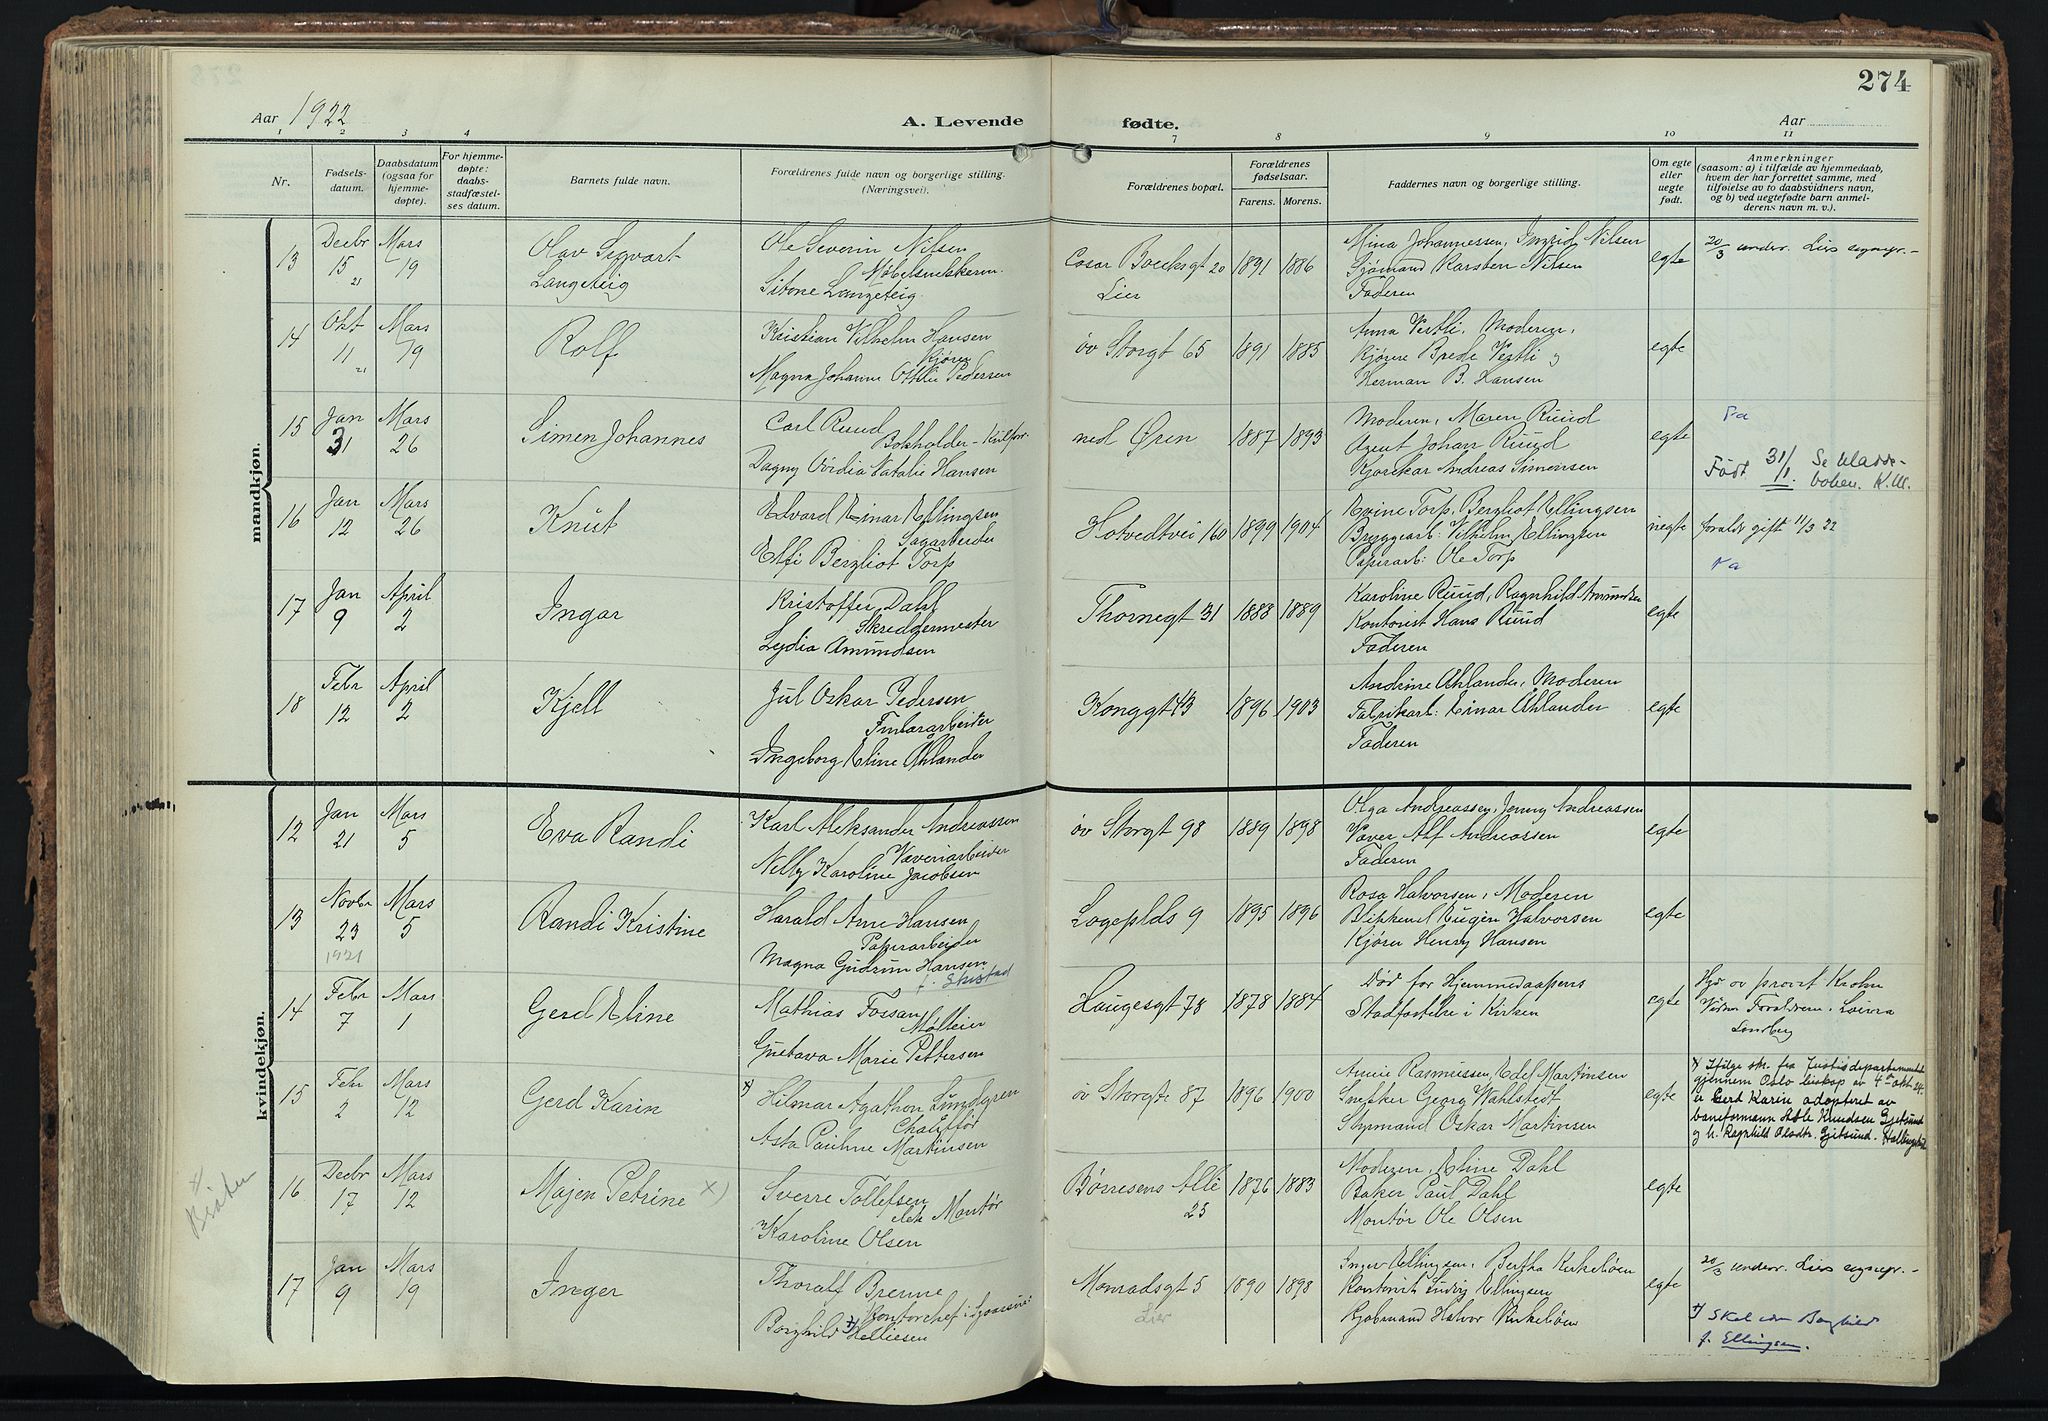 274
Aar 1922
A. Levende fødte.
Aar
1 2 3 4 7 8 9 10 11
Nr.
Fødselsdatum.
Daabsdatum (ogsaa for hjemmedøpte).
For hjemmedøpte: daabsstadfæstelses datum.
Barnets fulde navn.
Forældrenes fulde navn og borgerlige stilling. (Næringsvei).
Forældrenes bopæl.
Forældrenes fødselsaar.
Farens. Morens.
Faddernes navn og borgerlige stilling.
Om egte eller uegte født.
Anmerkninger (saasom: a) i tilfælde av hjemmedaab, hvem der har forrettet samme, med tilføielse av to daabsvidners navn, og b) ved uegtefødte barn anmelderens navn m. v.).
mandkjøn.
13 Decbr 15 21 Mars 19
Olav Sigvart Langeteig
Ole Severin Nilsen
Møbelsnekkerm.
Langeteig
20 Lier
1891 1886
Mina Johannessen, Ingrid Nilsen
Sjømand Karsten Nilsen
Faderen
egte
20/3 underr. Liers sognepr.
14 Okt 11 21 Mars 19
Rolf
Kristian Vilhelm Hansen
Kjører
Magna Johanne Othlie Pedersen
øv Storgt 65
1891 1885
Anna Vestli, Moderen,
Kjører Brede Vestli og
Herman B. Hansen
egte
15 Jan 31 Mars 26
Simen Johannes
Carl Ruud
Bokholder
Dagny Natalie Hansen
ned Øren
1887 1893
Moderen, Maren Ruud
Agent Johan Ruud
Andreas Simensen
egte
Født 31/1. Se kladdeboken. K.M.
16 Jan 12 Mars 26
Knut
Edvard Einar Ellingsen
Sagarbeider
Elfi Bergliot Torp
Hotvedtvei 160
1899 1904
Evine Torp, Bergliot Ellingsen
Bryggearb: Vilhelm Ellingsen
Papirarb: Ole Torp
uegte
foraldr gift 11/3 22
17 Jan 9 April 2
Ingar
Kristoffer Dahl
Skreddermester
Lydia Amundsen
Thornegt 31
1888 1889
Karoline Ruud, Ragnhild Amundsen
Kontorist Hans Ruud
Faderen
egte
18 Febr 12 April 2
Kjell
Jul Oskar Pedersen
Ingeborg Eline Åhlander
Konggt 43
1896 1903
Andrine Åhlander, Moderen
Fabrikarb: Einar Åhlander
Faderen
egte
kvindekjøn.
12 Jan 21 Mars 5
Eva Randi
Karl Aleksander Andreassen
Væveriarbeider
Nelly Karoline Jacobsen
øv Storgt 98
1889 1898
Olga Andreassen, Jenny Andreassen
Væver Alf Andreassen
Faderen
egte
13 Novbr 23 1921 Mars 5
Randi Kristine
Harald Arne Hansen
Papirarbeider
Magna Gudrun Hansen
f. Skistad
Logeplds 9
1895 1896
Rosa Halvorsen, Moderen
Blikkensl Eugen Halvorsen
Kjører Henry Hansen
egte
14 Febr 7 Mars 1
Gerd Eline
Mathias Fossan
Møller
Gustava Marie Pettersen
Haugesgt 78
1878 1884
Død før Hjemmedaapens
Stadfæstelse i Kirken
egte
Hjd av provst Krohn
Vidner Foraldrene, Lovisa
15 Febr 2 Mars 12
Gerd Karin
x) Hilmar Agathon Lundgren
Chauffør
Asta Pauline Martinsen
øv Storgte 87
1896 1900
Annie Rasmussen, Edel Martinsen
Snekker Georg Wahlstedt
Styrmand Oskar Martinsen
egte
x Ifølge sk. fra Justisdepartementet
gjennem Oslo biskop av 4de okt. 24.
er Gerd Karin adoptert av
baneformann Atle Knudsen Gjetsund
og h. Ragnhild Gjetsund.
16 Decbr 17 Mars 12
Majen Petrine x)
Sverre Tollefsen
elek Montør
Karoline Olsen
Børresens Alle 25
1876 1883
Moderen, Eline Dahl
Baker Paul Dahl
Montør Ole Olsen
egte
17 Jan 9 Mars 19
Inger
Thoralf Brenne
Kontorchef i
Borghild x) Helliesen
Monradsgt 5
Lier
1890 1898
Inger Ellingsen, Bertha Kirkeløen
Kontorist Ludvig Ellingsen
Kjøbmand Halvor Kirkeløen
egte
20/3 underr. Liers sognepr.
x) Skal være Borghild
f. Ellingsen.